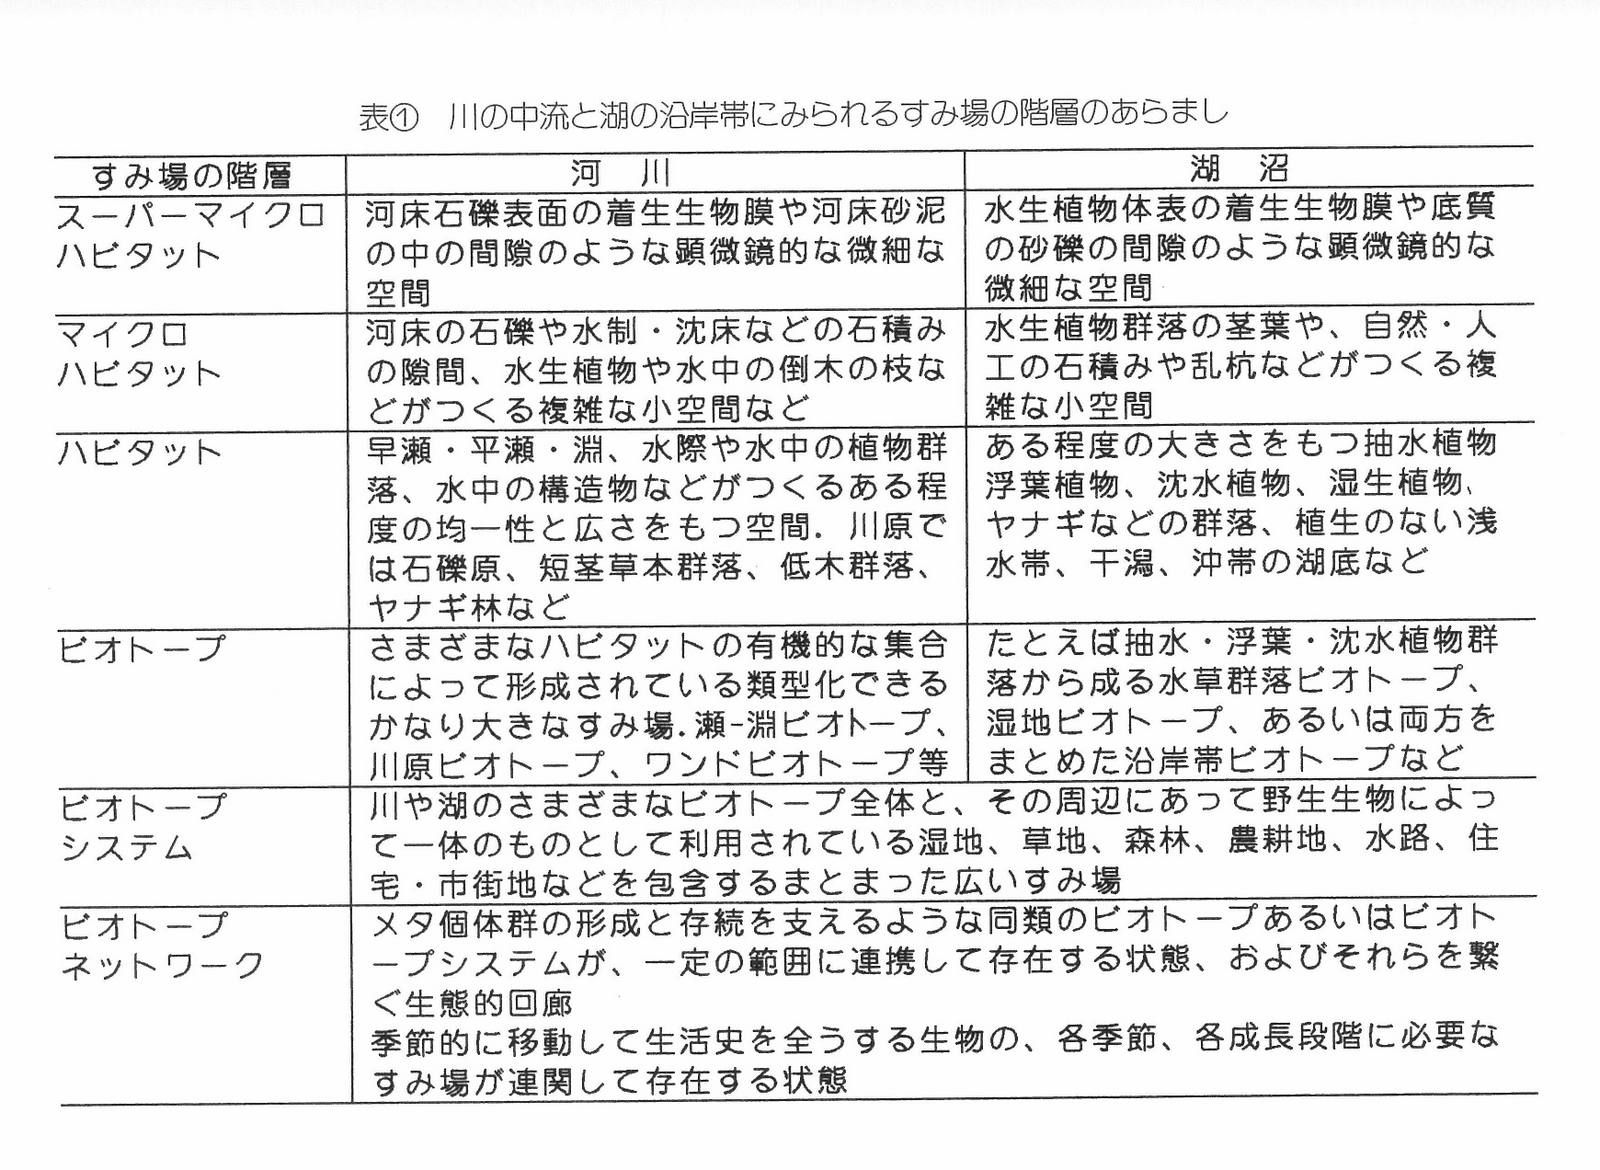 表① 川の中流と湖の沿岸帯にみられるすみ場の階層のあらまし
すみ場の階層 河 川 湖 沼
スーパーマイクロ
ハビタット
河床石礫表面の着生生物膜や河床砂泥
の中の間隙のような顕微鏡的な微細な
空間
水生植物体表の着生生物膜や底質
の砂礫の間隙のような顕微鏡的な
微細な空間
マイクロ
ハビタット
河床の石礫や水制・沈床などの石積み
の隙間、水生植物や水中の倒木の枝な
どがつくる複雑な小空間など
水生植物群落の茎葉や、自然・人
工の石積みや乱杭などがつくる複
雑な小空間
ハビタット
早瀬・平瀬・淵、水際や水中の植物群
落、水中の構造物などがつくるある程
度の均一性と広さをもつ空間．川原で
は石礫原、短茎草本群落、低木群落、
ヤナギ林など
ある程度の大きさをもつ抽水植物
浮葉植物、沈水植物、湿生植物、
ヤナギなどの群落、植生のない浅
水帯、干潟、沖帯の湖底など
ビオトープ
さまざまなハビタットの有機的な集合
によって形成されている類型化できる
かなり大きなすみ場．瀬-淵ビオトープ、
川原ビオトープ、ワンドビオトープ等
たとえば抽水・浮葉・沈水植物群
落から成る水草群落ビオトープ、
湿地ビオトープ、あるいは両方を
まとめた沿岸帯ビオトープなど
ビオトープ
システム
川や湖のさまざまなビオトープ全体と、その周辺にあって野生生物によっ
て一体のものとして利用されている湿地、草地、森林、農耕地、水路、住
宅・市街地などを包含するまとまった広いすみ場
ビオトープ
ネットワーク
メタ個体群の形成と存続を支えるような同類のビオトープあるいはビオト
ープシステムが、一定の範囲に連携して存在する状態、およびそれらを繋
ぐ生態的回廊
季節的に移動して生活史を全うする生物の、各季節、各成長段階に必要な
すみ場が連関して存在する状態